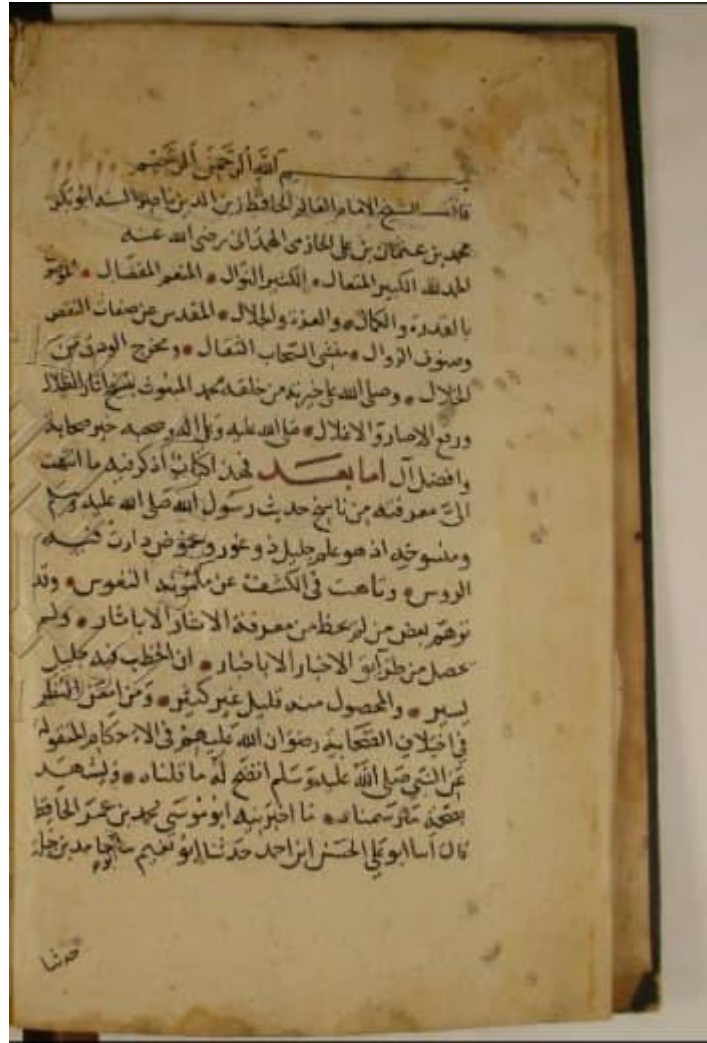 بسم الله الرحمن الرحيم
قال الشيخ الامام العالم الحافظ زين الدين ناصر السنه ابو بكر
محمد بن عثمان بن علي الحازمى الهمدانى رضى الله عنه
الحمد لله الكبير المتعال الكثير النوال المنعم المفضال
بالقدرة والكمال والعزة والجلال المقدس عن صفات النقص
وصنوف الزوال منشى السحاب الثقال ومخرج الودق من
الخلال وصلى الله على خيرته من خلقه محمد المبعوث بنسخ اثار الظلال
ورفع الاصار والاغلال صلى الله عليه وعلى اله وصحبه خير صحابة
وافضل آل اما بعد فهذا كتاب اذكر فيه ما انتهت
الىّ معرفته من ناسخ حديث رسول الله صلى الله عليه وسلم
ومنسوخه اذ هو علم جليل ذو غور وغموض دارت فيه
الروس وتاهت فى الكشف عن مكنونه النفوس وقد
توهم بعض من لم يحظ من معرفة الاثار الا باثار ولم
يحصل من طرايق الاخبار الا باخبار ان الخطب فيه جليل
يسير والمحصول منه قليل غير كثير ومن امعن النظر
في اختلاف الصحابة رضوان الله عليهم في الاحكام المنقولة
عن النبي صلى الله عليه وسلم اتضح له ما قلناه ويشهد
بصحة ما رسمناه ما اخبرنيه ابو موسى محمد بن عمر الحافظ
قال انبا ابو علي الحسن ابن احمد حدثنا ابو نعيم ثنا ابو حامد بن جبلة
حدثنا